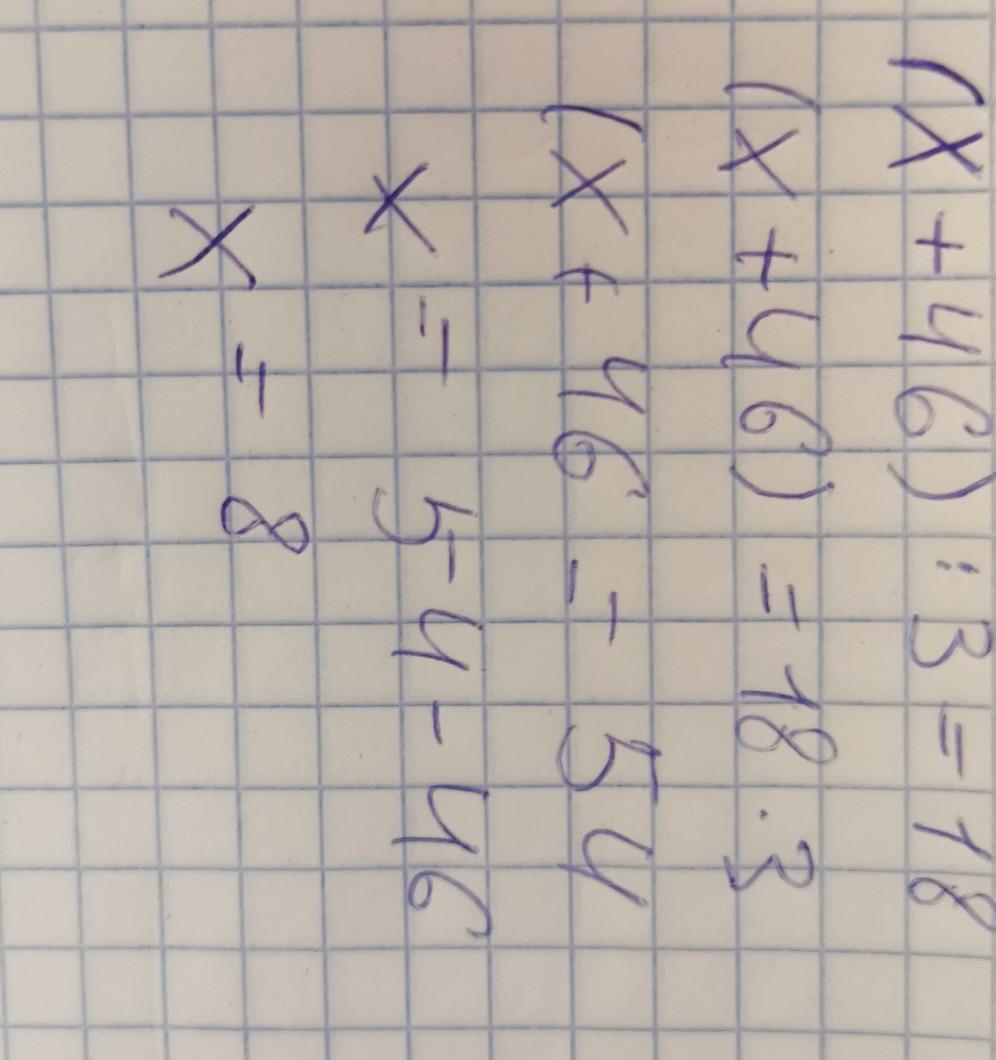 (x + 46) : 3 = 18
(x + 46) = 18 · 3
(x + 46 = 54
x = 54 - 46
x = 8